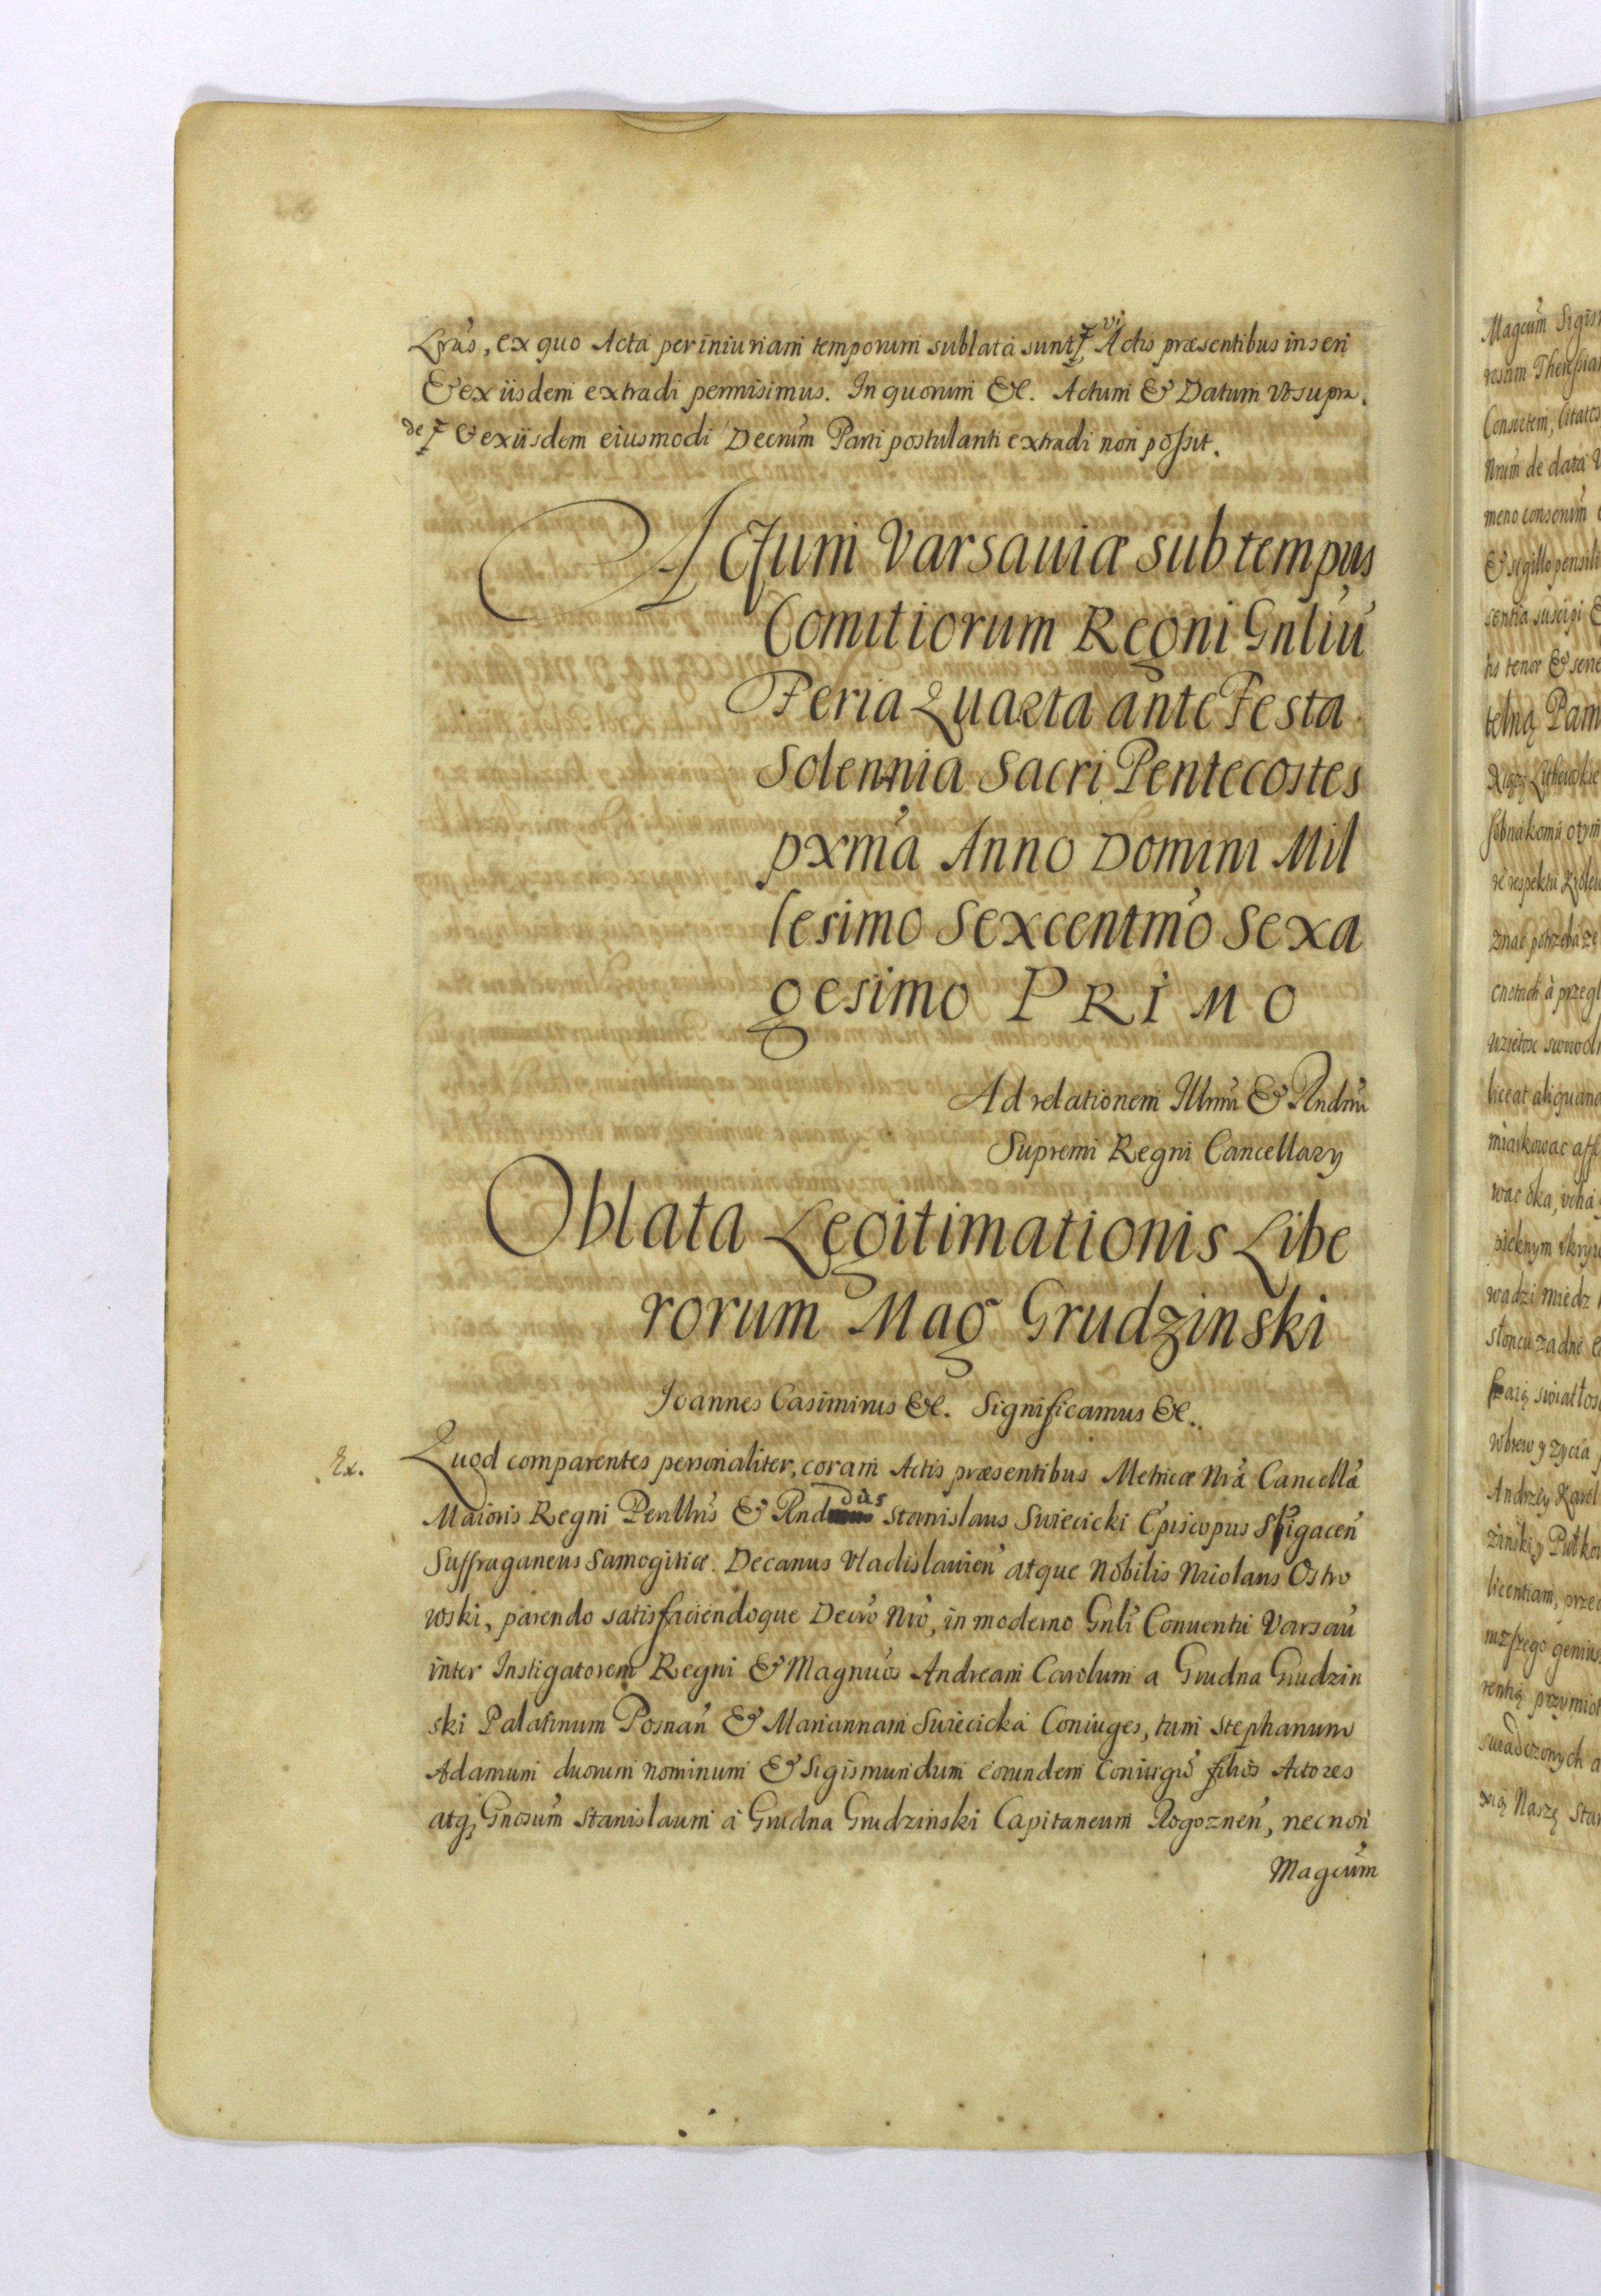 Lrás, ex quo Acta per iniuriam temporum sublata sunt ꝉ, vi Actis præsentibus inseri
& ex iisdem extradi permisimus. In quorum &c. Actum & Datum vt supra.
de ꝉ & ex iisdem eiusmodi Decrúm Parti postulanti extradi non possit.
Actum Varsauiæ sub tempus
Comitiorum Regni Gnliú
Feria Quarta ante Festa
Solennia Sacri Pentecostes
pxmá Anno Domini Mil
lesimo Sexcentmó Sexa
gesimo PRIMO
Ad relationem Illmi & Rndmi
Supremi Regni Cancellary
Oblata Legitimationis Libe
rorum Mag Grudzinski
Joannes Casimirus &c. Significamus &c.
Ex.
Quod comparentes personaliter, coram Actis præsentibus Metricæ Nrá Cancellá
Maioris Regni Perillris & Rnddus Stanislaus Swiecicki Episcopus Spigacen
Suffraganeus Samogitiæ. Decanus Vladislauien atque Nobilis Nicolaus Ostro
wski, parendo satisfaciendoque Decró Nró, in moderno Gnli Conuentu Varsaú
inter Instigatorem Regni & Magnuos Andream Carolum a Grudna Grudzin
ski Palatinum Posnań & Mariannam Swiecicka Coniuges, tum Stephanum
Adamum duorum nominum & Sigismundum eorundem Coniugú filios Actores
atq, Gnosum Stanislaum a Grudna Grudzinski Capitaneum Rogoznen, necnon
Magcúm
Magcúm
Consortem,
Nrum de data
meno consenúm
& sigillo pensili
sentia suscipi &
telną Pam
znac potrzeba ze
cnotach à przegl
liceat aliquand
miarkowac affe
pieknym
wadzi miedz
słoncu zadne
swiatłos
wbrew y zycia
Andrzey Karol
licentiam, przed
przymiot
Naszę Star